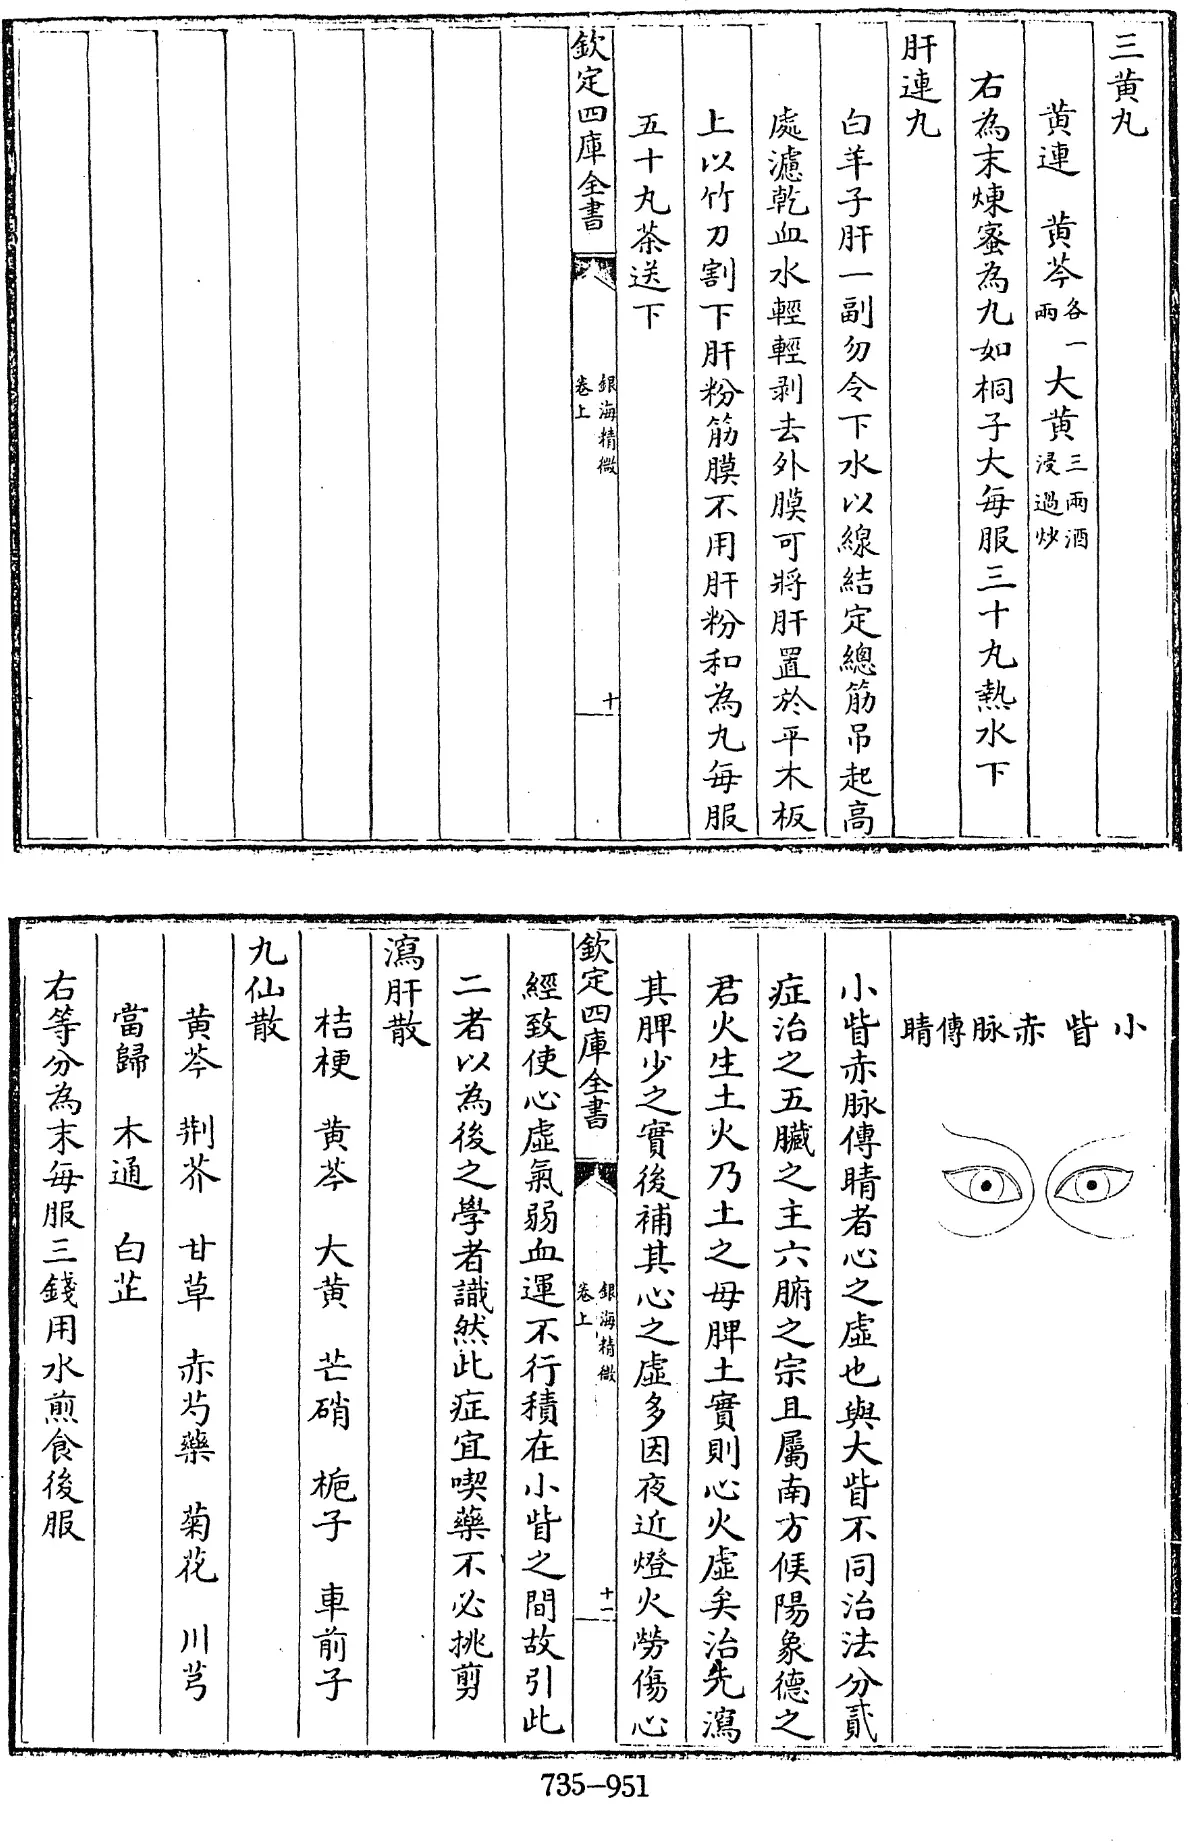 三黄丸
黄連　黄芩各一兩　大黄三兩酒浸過炒
右為末煉蜜為丸如桐子大每服三十丸熱水下
肝連丸
白羊子肝一副勿令下水以線結定總筋吊起高
處濾乾血水輕輕剥去外膜可將肝置於平木板
上以竹刀割下肝粉筋膜不用肝粉和為丸每服
五十丸茶送下
欽定四庫全書
銀海精微
卷上
十
小眥赤脉傳睛
小眥赤脉傳睛者心之虛也與大眥不同治法分貳
症治之五臟之主六腑之宗且屬南方候陽象德之
君火生土火乃土之母脾土實則心火虛矣治先瀉
其脾少之實後補其心之虛多因夜近燈火勞傷心
欽定四庫全書
銀海精微
卷上
十一
經致使心虛氣弱血運不行積在小眥之間故引此
二者以為後之學者識然此症宜喫藥不必挑剪
瀉肝散
桔梗　黄芩　大黄　芒硝　梔子　車前子
九仙散
黄芩　荆芥　甘草　赤芍藥　菊花　川芎
當歸　木通　白芷
右等分為末每服三錢用水煎食後服
735-951